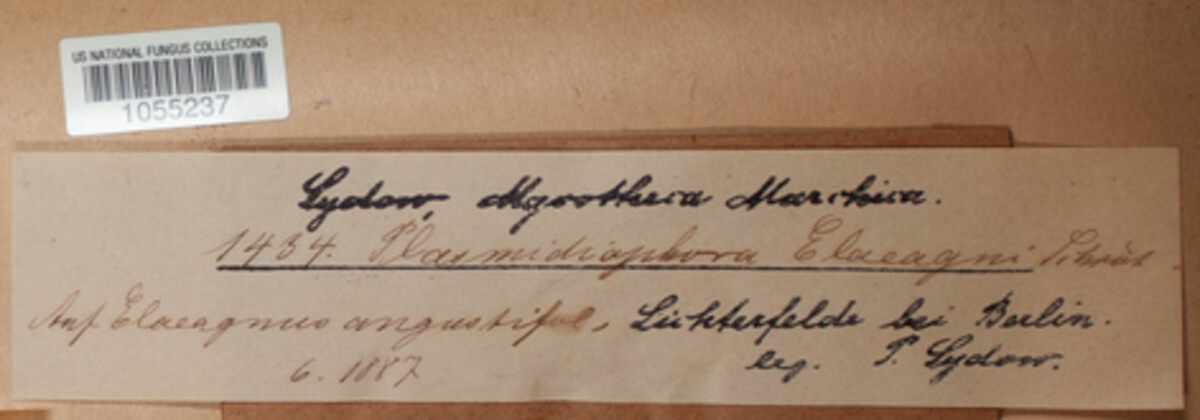 US NATIONAL FUNGUS COLLECTIONS
1055237
Sydow, Mycotheca Marchica.
1434. Plasmidiophora Elaeagni Schröt.
Auf Elaeagnus angustifol. Lichterfelde bei Berlin.
6. 1887 leg. P. Sydow.